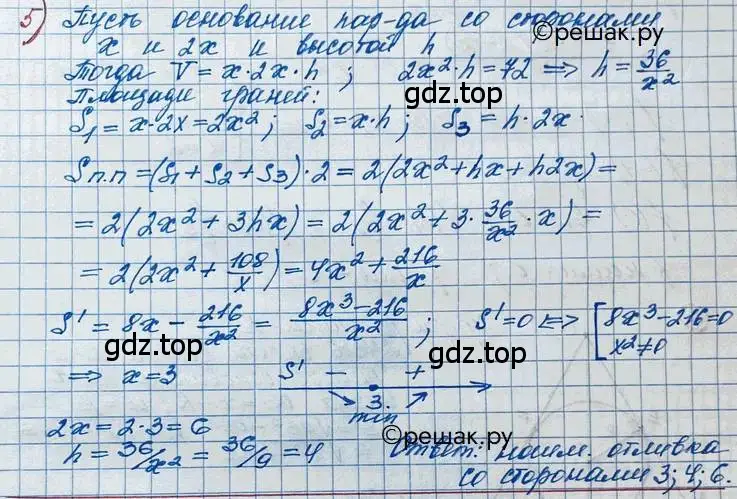 5) Пусть основание пар-да со сторонами
©reшак.ру
x и 2x и высотой h
Тогда V = x·2x·h ; 2x²·h = 72 ⟹ h = 36/x²
Площади граней:
gdz.top
S₁ = x·2x = 2x² ; S₂ = x·h ; S₃ = h·2x.
Sп.п = (S₁ + S₂ + S₃)·2 = 2(2x² + hx + h2x) =
= 2(2x² + 3hx) = 2(2x² + 3·36/x²·x) =
= 2(2x² + 108/x) = 4x² + 216/x
S' = 8x − 216/x² = (8x³ − 216)/x² ; S' = 0 ⟺ [8x³ − 216 = 0
x² ≠ 0
gdz.top
gdz.top
⟹ x = 3 S' − +
3
min
2x = 2·3 = 6
©reшак.ру
h = 36/x² = 36/9 = 4 Ответ: наим. отливка
со сторонами 3; 4; 6.
gdz.top